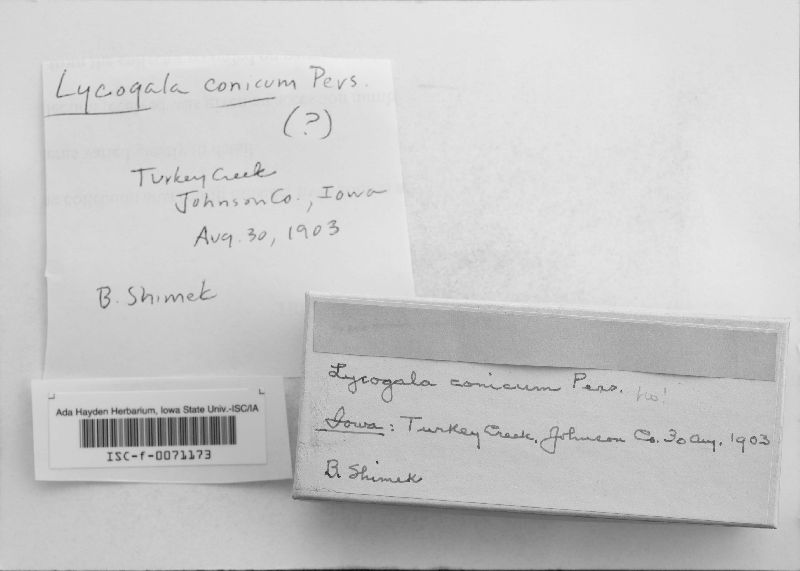 Lycogala conicum Pers.
(?)
Turkey Creek
Johnson Co., Iowa
Aug. 30, 1903
B. Shimek
Ada Hayden Herbarium, Iowa State Univ.-ISC/IA
ISC-f-0071173
Lycogala conicum Pers. no!
Iowa: Turkey Creek, Johnson Co. 30 Aug. 1903
B. Shimek